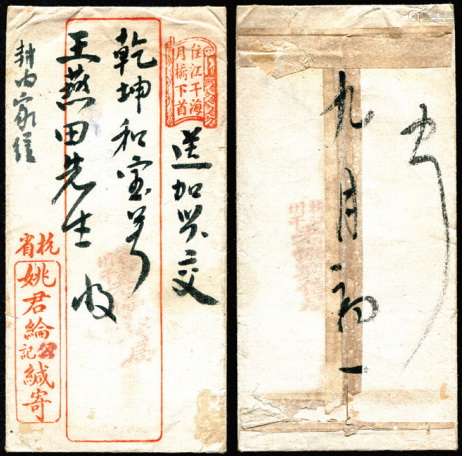 住江干海
月橋下首
送加興交
乾坤和宝号
王燕田先生收
封内家信
杭省
姚君綸記緘寄
九月初一